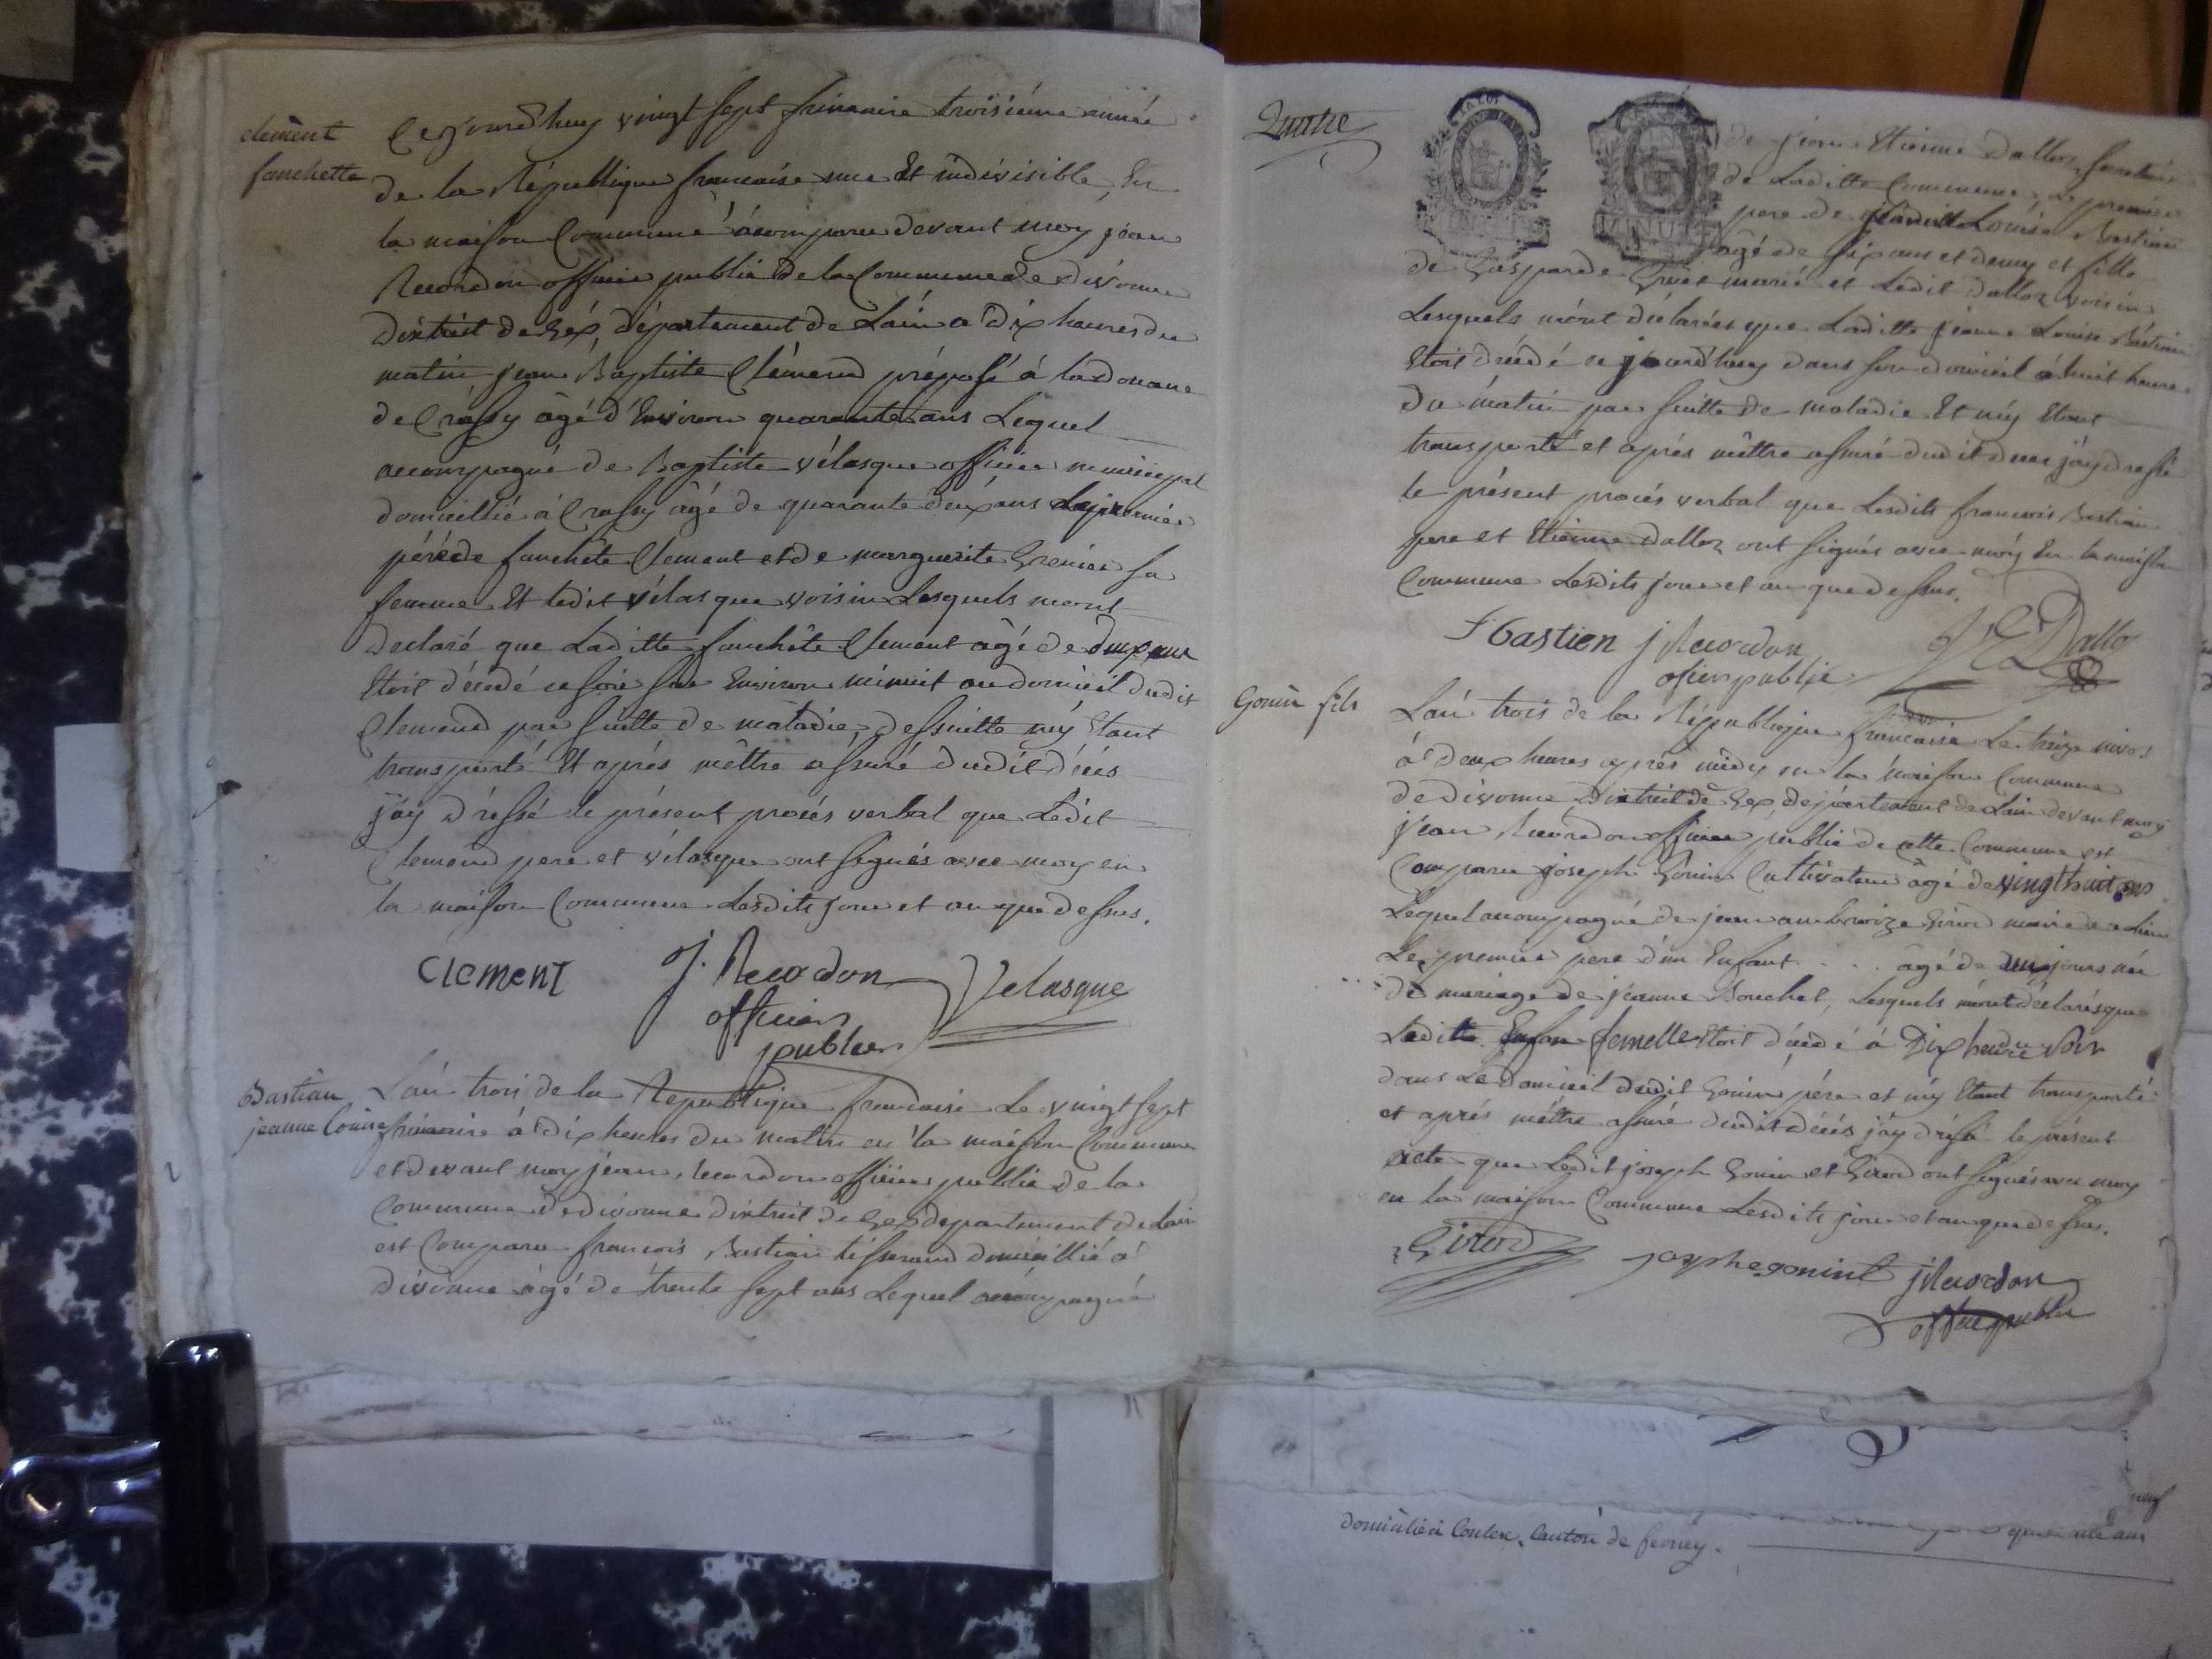 clement
fanchette
Cejourdhuy vingt sept frimaire troisiéme année
de la République francaise une Et indivisible, En
la maison Commune á comparu devant moy jean
Recordon officier public de la Commune de divonne
district de Gex, département de Lain a dix heures du
matin jean Baptiste Clémend préposé á la doüane
de Crassy âgé d'Environ quarante ans Lequel
accompagné de Baptiste vélasque officier municipal
domicillié á Crassy âgé de quarante deux ans Le premier
pére de fanchête Clement et de marguerite Grenier sa
femme Et ledit vélasque voisin Lesquels mont
declaré que Laditte fanchête Clement âgé de deux ans
Etoit décedé ce soir sur Environ minuit au domicil dudit
Clemend par suitte de maladie, dessuitte my Etant
transporté Et aprés mêttre assuré dudit décés
j'äy dréssé le présent procés verbal que Ledit
Clemend pere et vélasque ont signés avec moy en
la maison Commune Lesdits jour et an que dessus.
Clement J. Recordon Velasque
officier
public
Bastian
jeanne Louise
L'an trois de la République francaise Le vingt sept
frimaire á dix heures du matin en la maison Commune
et devant moy jean Recordon officier public de la
Commune de divonne district de Gex departement de Lain
est Comparu francois Bastian tisserand domicillié á
divonne âgé de trente sept ans Lequel accompagné
de jean Etienne dalloz
de Laditte Commune, Le premier
pere de Louise Bastian
âgé de six ans et demy et fille
de Gasparde mariè et Ledit dalloz voisin
Lesquels mônt déclarées que Laditte jeanne Louise Bastian
Etoit décédé ce jourdhuy dans son domicil á huit heures
du matin par suitte de maladie Et m'y Etant
transporté et aprés mêttre assuré dudit deces j'äy dressé
le présent procés verbal que Lesdits francois Bastian
pere et Etienne dalloz ont signés avec moy En la maison
Commune Lesdits jour et an que dessus.
f bastien j Recordon J E Dalloz
ofisier publie
Gonin fils
L'an trois de la République francaise Le treize nivos
á deux heures aprés midy en la maison Commune
de divonne district de Gex, departement de Lain devant moy
jean Recordon officier public de cette Commune est
Comparu joseph Gonin Cultivateur âgé de vingt huit ans
Lequel accompagné de jean ambroize Girod maire de
Le premier pere d'un Enfant . . . âgé de jours née
de mariage de jeanne Bouchet, Lesquels mont déclarés que
Laditte Enfan femelle Etoit décedé á Dix heure du soir
dans Le domicil dudit Gonin pére et m'y Etant transporté
et aprés mêttre assuré dudit décés j'äy dréssé le présent
acte que Ledit joseph Gonin et Girod ont signés avec moy
en la maison Commune Lesdits jour et an que dessus.
Girod josephe gonint j Recordon
officier public
neuf
domicilié á Canton de ferney. quarante ans